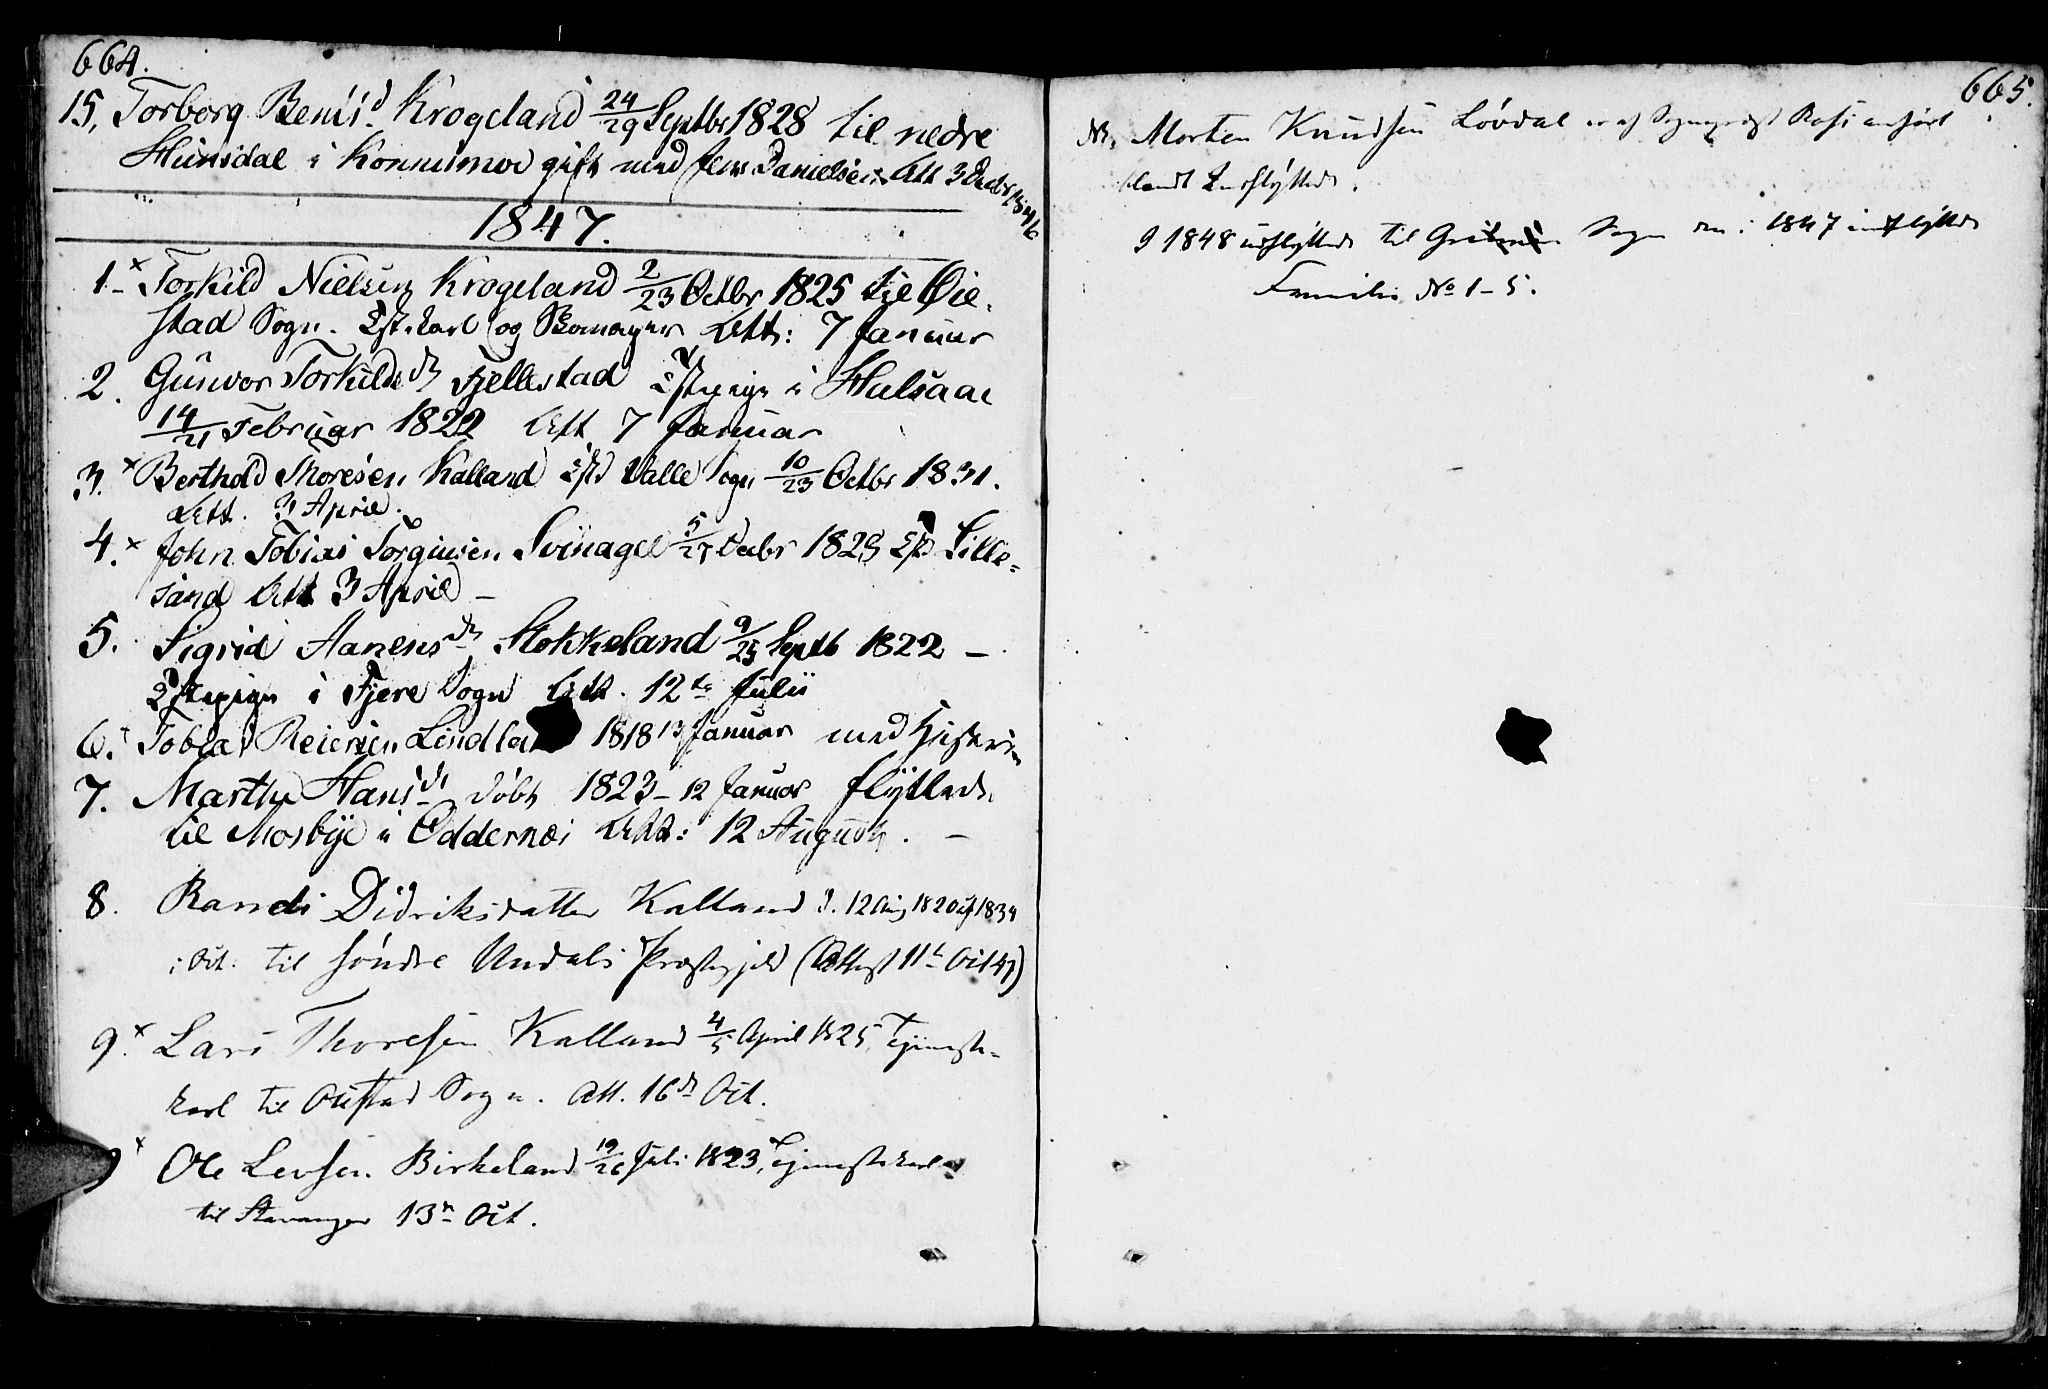 664.
15, Torborg Bentsd Krogeland 24/29 Septbr 1828 til nedre
Hunsdal i Konnismoe gift med Jens Danielsen Att 3 Decbr 1846
1847.
1 x Torkild Nielsen Krogeland 2/23 Octbr 1825 til Øie-
stad Sogn. Tjst.karl og Skomager Att: 7 Januar
2. Gunvor Torkildsdr Fjellestad Tjstepige i Halsaae
14/21 Februar 1822 Att 7 Januar
3. x Berthold Thoresen Kalland Valle Sogn 10/23 Octbr 1831.
Att. 3 April.
4. x John Tobias Torgiusen Svinagel 5/27 Decbr 1829 Lille-
sand Att 3 April -
5. Sigrid Aanensdr Stokkeland 9/25 Septb 1822 -
Tjstepige i Fjere Sogn Att. 12te Julii
6. Tobias Reiersen 1818 13 Januar med Hustru
7. Marthe Hansdr døbt 1823 - 12 Januar flyttede
til Mosbye i Oddernes Att: 12 August. -
8. Randi Didriksdatter Kalland d. 12 Aug 1820 1834
i Oct. til søndre Undals Præstegjeld (Attest 11te Oct 47)
9. x Lars Thoresen Kalland 4/5 April 1825, Tjeneste-
karl til Sogn. Att. 16de Oct.
9 x Ole Levsen Birkeland 19/26 Juli 1823, Tjenestekarl
til Stavanger 13de Oct.
665.
NB, Morten Knudsen Løvdal er af Sogneprest anført
blandt Indflyttede.
I 1848 udflyttede til Sogn den i 1847 indflyttede
Familie No 1-5.